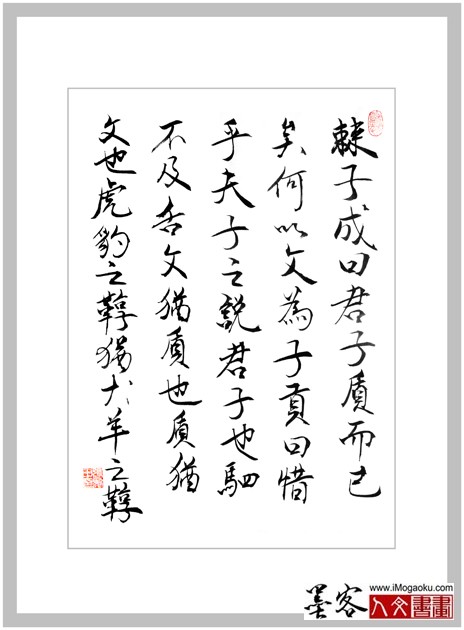 棘子成曰君子質而已
矣何以文為子貢曰惜
乎夫子之說君子也駟
不及舌文猶質也質猶
文也虎豹之鞟猶犬羊之鞟
墨客
www.iMogaoku.com
人文書畫